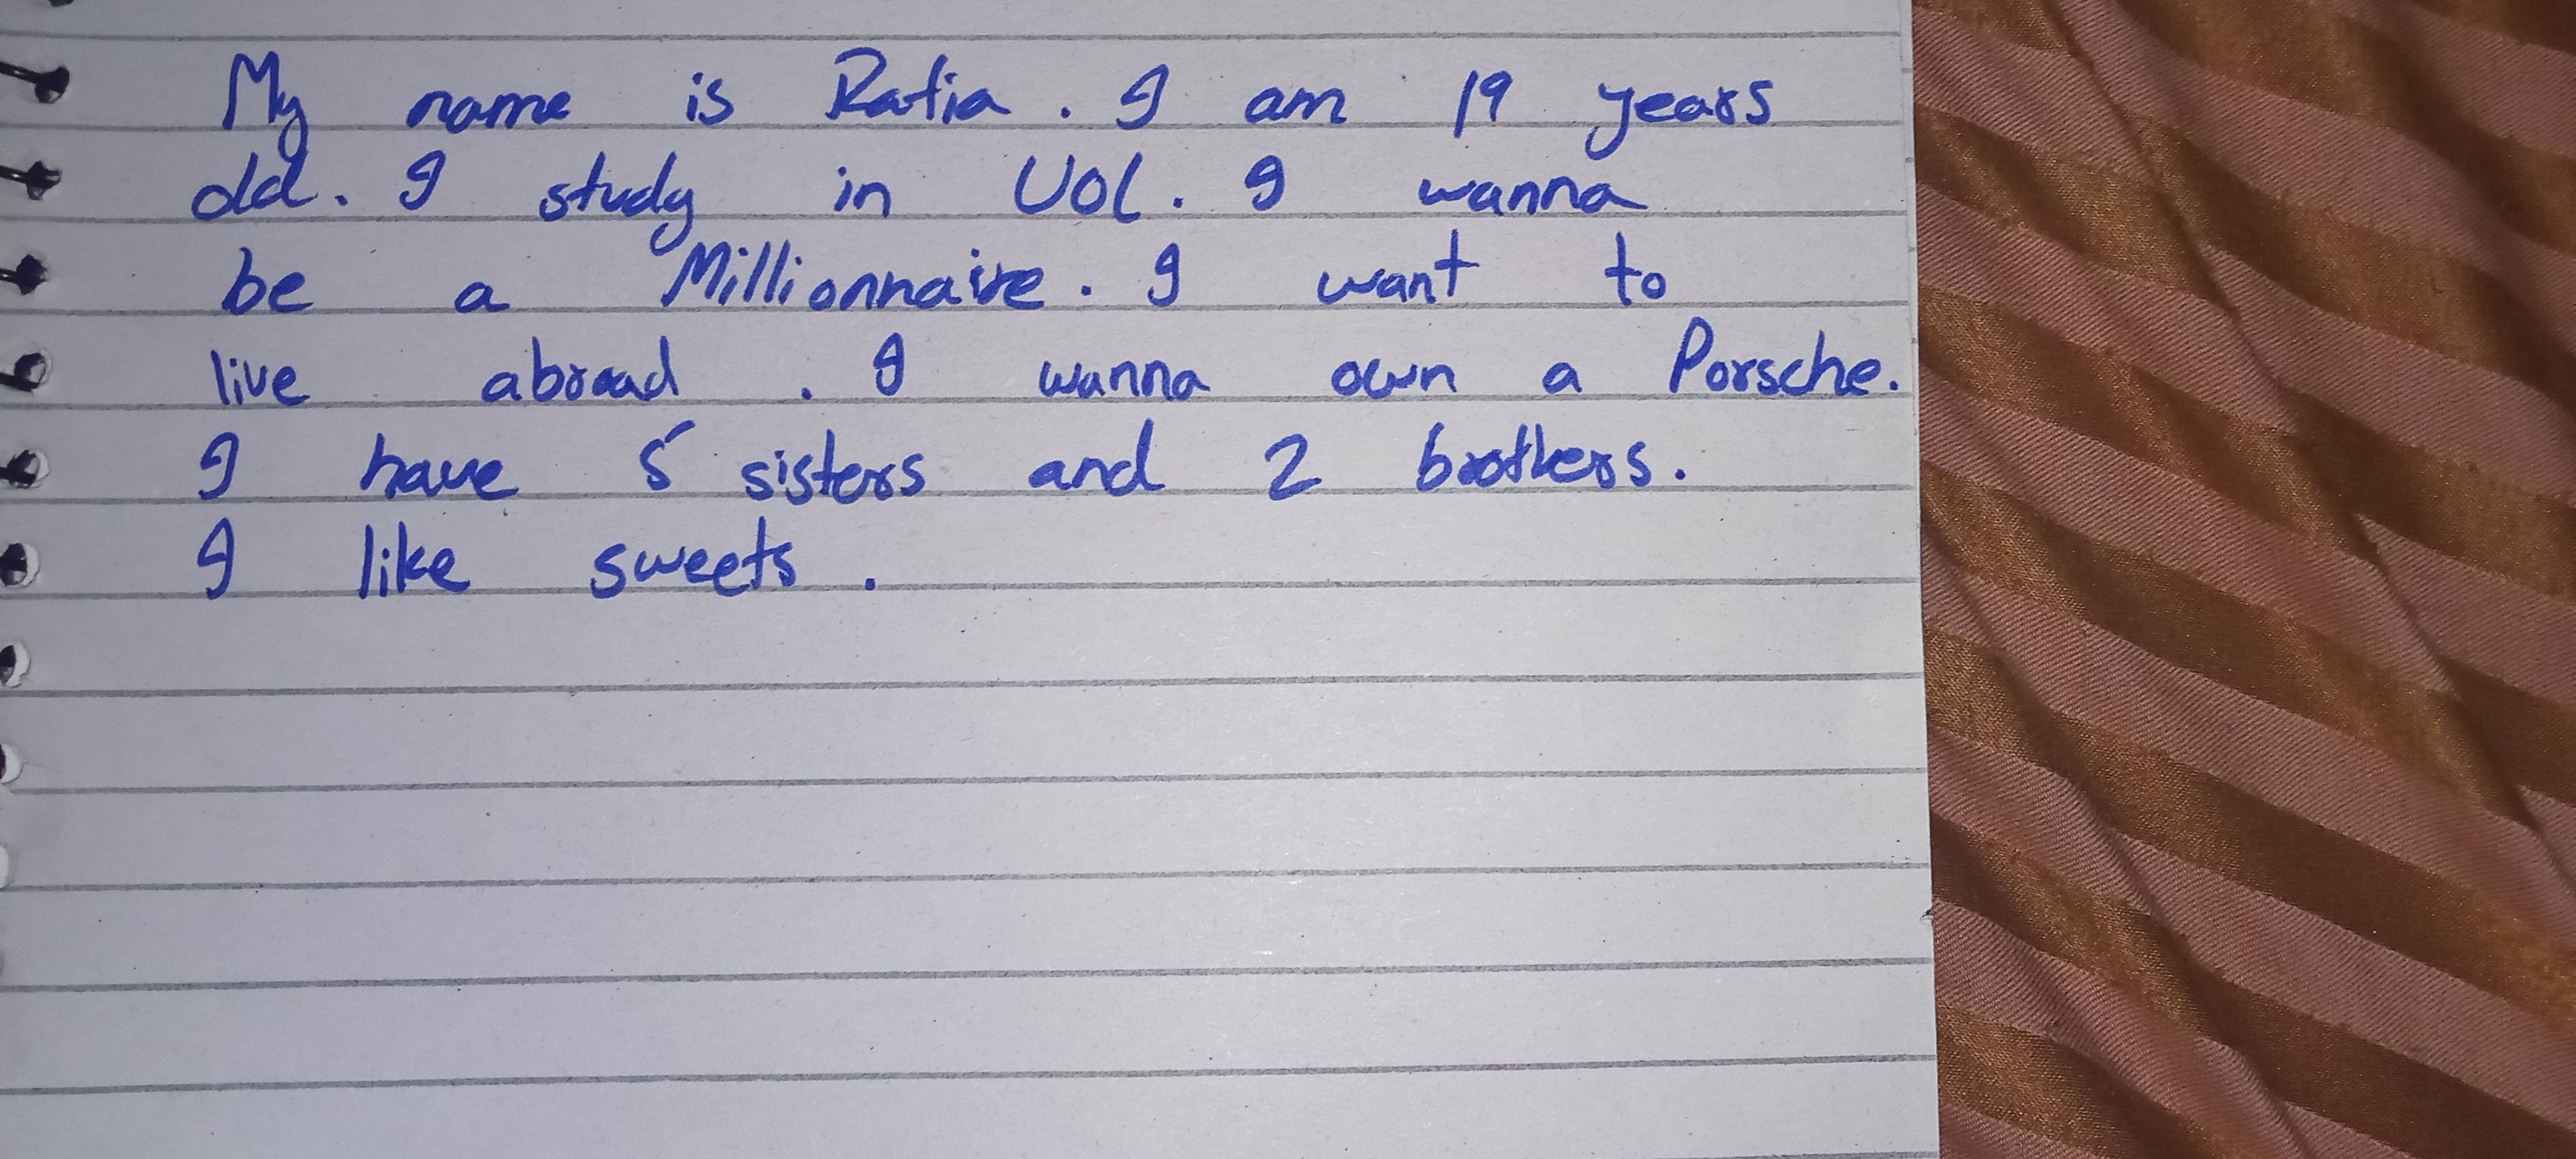 My name is Rafia. I am 19 years
old. I study in UOL. I wanna
be a Millionnaire. I want to
live abroad. I wanna own a Porsche.
I have 5 sisters and 2 brothers.
I like sweets.